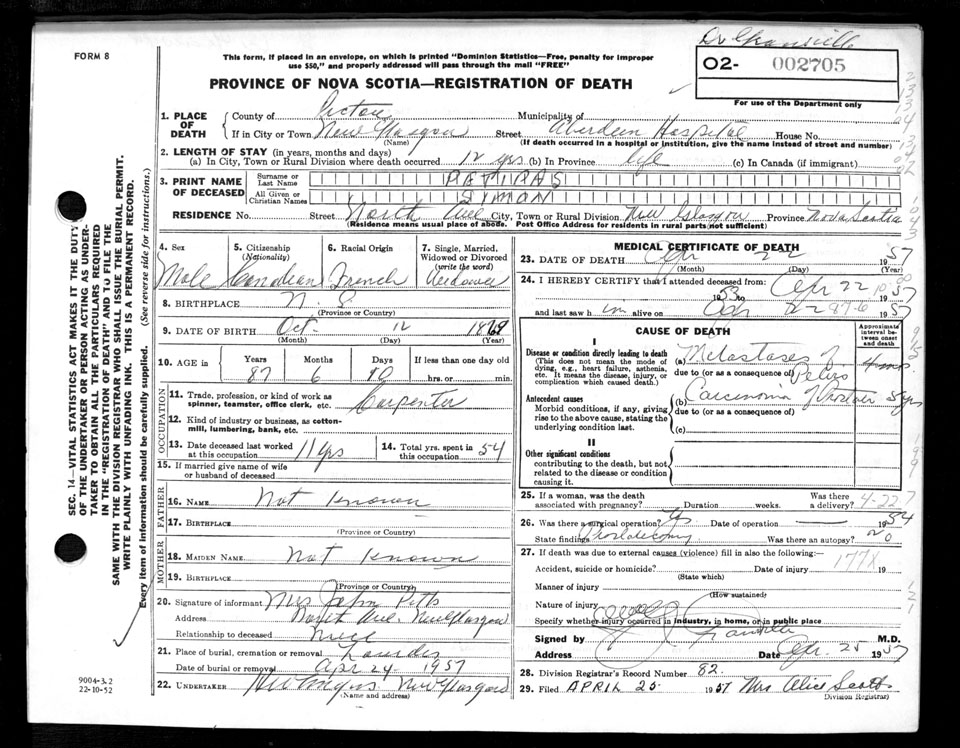 FORM 8
This form, if placed in an envelope, on which is printed "Dominion Statistics—Free, penalty for improper
use $50," and properly addressed will pass through the mail "FREE"
PROVINCE OF NOVA SCOTIA—REGISTRATION OF DEATH
Dr Granville
02- 002705
For use of the Department only
1. PLACE OF DEATH
County of Pictou Municipality of
If in City or Town New Glasgow Street Aberdeen Hospital House No.
(Name) (If death occurred in a hospital or institution, give the name instead of street and number)
2. LENGTH OF STAY (in years, months and days)
(a) In City, Town or Rural Division where death occurred 12 yrs (b) In Province life (c) In Canada (if immigrant)
3. PRINT NAME OF DECEASED
Surname or Last Name PETIPAS
All Given or Christian Names SIMON
RESIDENCE No. Street North Ave City, Town or Rural Division New Glasgow Province Nova Scotia
(Residence means usual place of abode. Post Office Address for residents in rural parts not sufficient)
4. Sex Male
5. Citizenship (Nationality) Canadian
6. Racial Origin French
7. Single, Married, Widowed or Divorced (write the word) Widower
8. BIRTHPLACE N. S
(Province or Country)
9. DATE OF BIRTH Oct 12 1869
(Month) (Day) (Year)
10. AGE in Years Months Days If less than one day old
87 6 10 hrs. or min.
OCCUPATION
11. Trade, profession, or kind of work as spinner, teamster, office clerk, etc. Carpenter
12. Kind of industry or business, as cotton-mill, lumbering, bank, etc.
13. Date deceased last worked at this occupation 11 yrs
14. Total yrs. spent in this occupation 54
15. If married give name of wife or husband of deceased
FATHER
16. NAME Not Known
17. BIRTHPLACE
(Province or Country)
MOTHER
18. MAIDEN NAME Not Known
19. BIRTHPLACE
(Province or Country)
20. Signature of informant Mrs John Pitts
Address North Ave. New Glasgow
Relationship to deceased niece
21. Place of burial, cremation or removal Lourdes
Date of burial or removal Apr 24 - 1957
22. UNDERTAKER New Glasgow
(Name and address)
MEDICAL CERTIFICATE OF DEATH
23. DATE OF DEATH Apr 22 1957
(Month) (Day) (Year)
24. I HEREBY CERTIFY that I attended deceased from: Apr 22 1957
1953 to
and last saw him alive on Apr 22 1957
87-6
CAUSE OF DEATH
Approximate interval between onset and death
I
Disease or condition directly leading to death
(This does not mean the mode of dying, e.g., heart failure, asthenia, etc. It means the disease, injury, or complication which caused death.)
(a) Metastases of Pelvis
due to (or as a consequence of)
Antecedent causes
Morbid conditions, if any, giving rise to the above cause, stating the underlying condition last.
(b) Carcinoma of Prostate 5 yrs
due to (or as a consequence of)
(c)
II
Other significant conditions
contributing to the death, but not related to the disease or condition causing it.
25. If a woman, was the death associated with pregnancy? Duration weeks. Was there a delivery? 4-22-7
26. Was there a surgical operation? Yes Date of operation 1954
State findings Prostatectomy Was there an autopsy? no
27. If death was due to external causes (violence) fill in also the following:—
Accident, suicide or homicide? Date of injury 19
(State which)
177X
Manner of injury
(How sustained)
Nature of injury
Specify whether injury occurred in industry, in home, or in public place
Signed by Granville M.D.
Address Date Apr. 25 1957
28. Division Registrar's Record Number 82.
29. Filed APRIL 25. 1957 Mrs Alice Scott
Division Registrar
SEC. 14—VITAL STATISTICS ACT MAKES IT THE DUTY
OF THE UNDERTAKER OR PERSON ACTING AS UNDERTAKER
TO OBTAIN ALL THE PARTICULARS REQUIRED
IN THE "REGISTRATION OF DEATH" AND TO FILE THE
SAME WITH THE DIVISION REGISTRAR WHO SHALL ISSUE THE BURIAL PERMIT.
WRITE PLAINLY WITH UNFADING INK. THIS IS A PERMANENT RECORD.
Every item of information should be carefully supplied. (See reverse side for instructions.)
9004-3.2
22-10-52